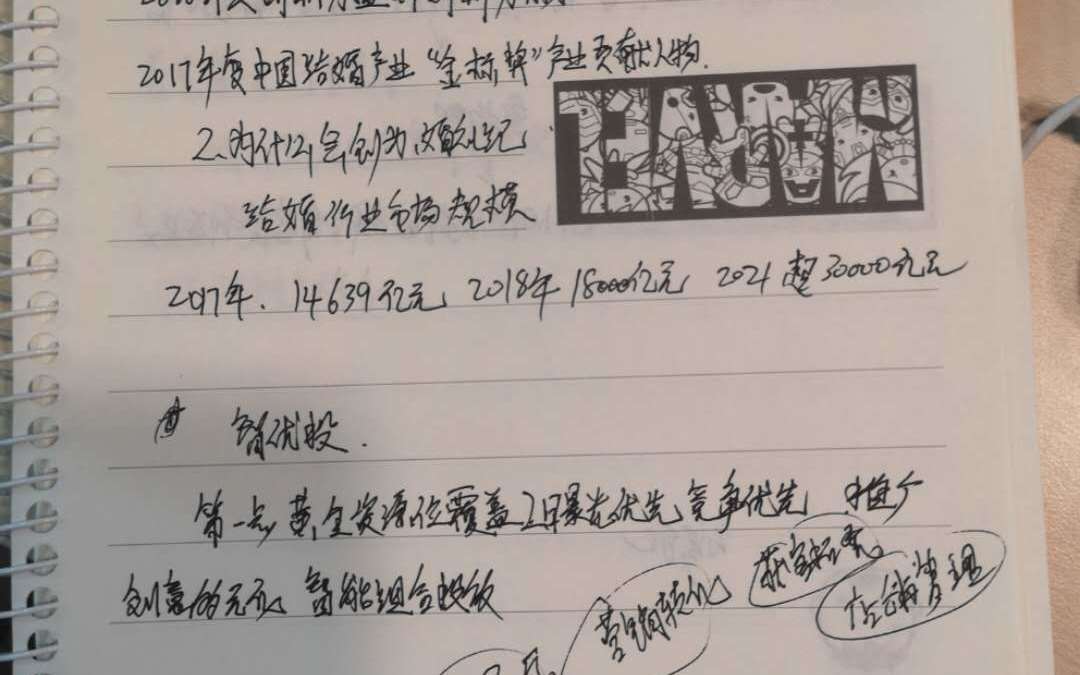 2017年度中国结婚产业“金标奖”产业贡献人物.
2、为什么会创办婚礼纪
结婚行业市场规模
2017年. 14639亿元 2018年 18000亿元 2021超30000亿元
智优投.
第一点,黄金资源位覆盖 2、曝光优先,竞争优先 推广
智能组合投放
营销
店铺管理